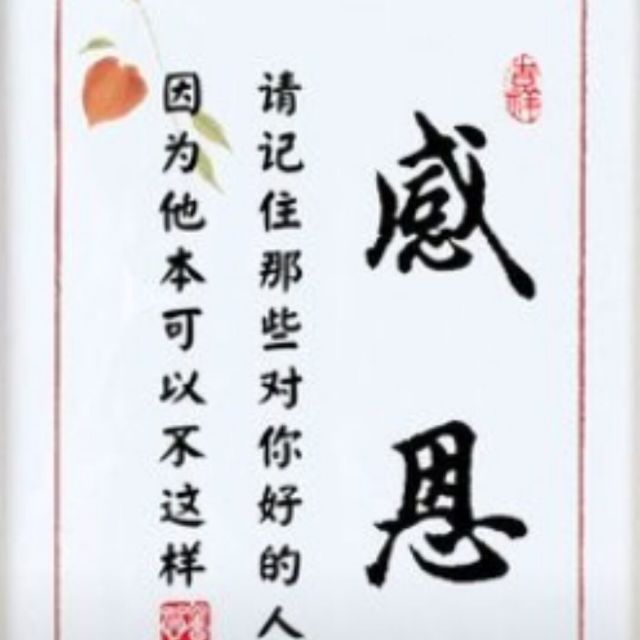 吉祥
感恩
请记住那些对你好的人
因为他本可以不这样